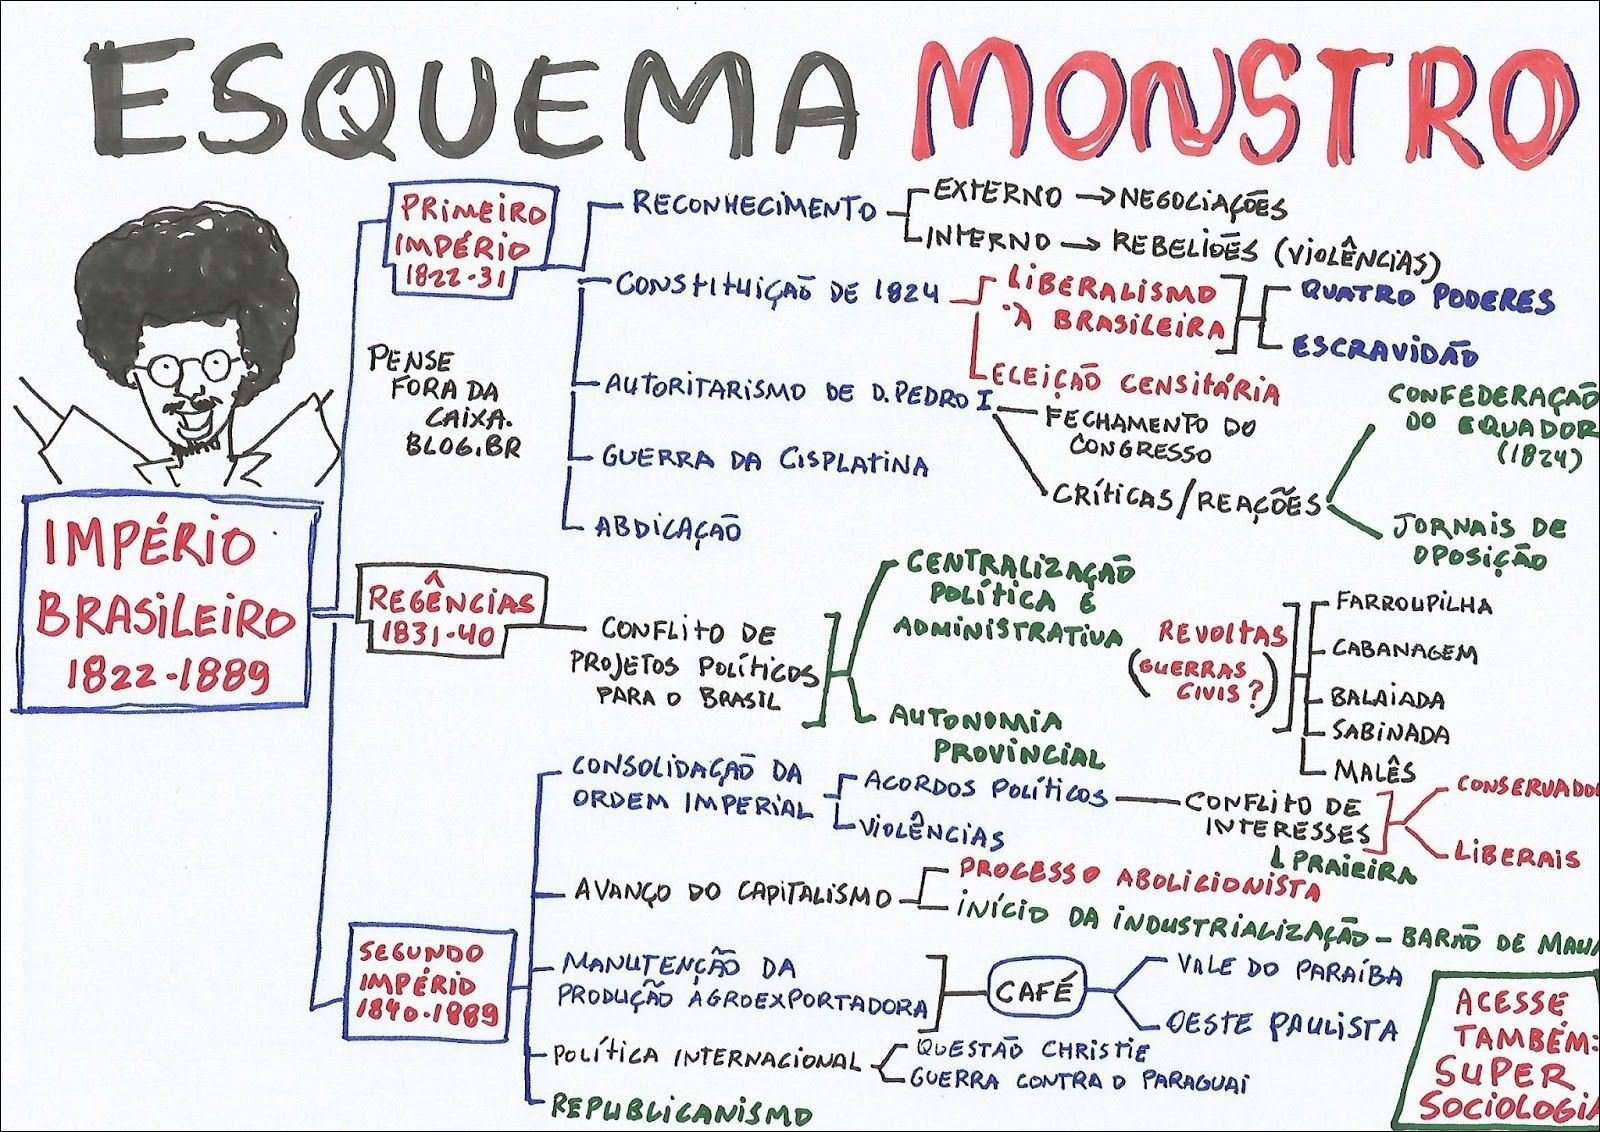 ESQUEMA MONSTRO
PENSE
FORA DA
CAIXA.
BLOG.BR
IMPÉRIO
BRASILEIRO
1822-1889
PRIMEIRO
IMPÉRIO
1822-31
RECONHECIMENTO
EXTERNO → NEGOCIAÇÕES
INTERNO → REBELIÕES (VIOLÊNCIAS)
CONSTITUIÇÃO DE 1824
LIBERALISMO
À BRASILEIRA
QUATRO PODERES
ESCRAVIDÃO
ELEIÇÃO CENSITÁRIA
AUTORITARISMO DE D. PEDRO I
FECHAMENTO DO
CONGRESSO
CRÍTICAS/REAÇÕES
CONFEDERAÇÃO
DO EQUADOR
(1824)
JORNAIS DE
OPOSIÇÃO
GUERRA DA CISPLATINA
ABDICAÇÃO
REGÊNCIAS
1831-40
CONFLITO DE
PROJETOS POLÍTICOS
PARA O BRASIL
CENTRALIZAÇÃO
POLÍTICA E
ADMINISTRATIVA
AUTONOMIA
PROVINCIAL
REVOLTAS
(GUERRAS
CIVIS?)
FARROUPILHA
CABANAGEM
BALAIADA
SABINADA
MALÊS
SEGUNDO
IMPÉRIO
1840-1889
CONSOLIDAÇÃO DA
ORDEM IMPERIAL
ACORDOS POLÍTICOS
VIOLÊNCIAS
CONFLITO DE
INTERESSES
PRAIEIRA
CONSERVADO
LIBERAIS
AVANÇO DO CAPITALISMO
PROCESSO ABOLICIONISTA
INÍCIO DA INDUSTRIALIZAÇÃO - BARÃO DE MAUÁ
MANUTENÇÃO DA
PRODUÇÃO AGROEXPORTADORA
CAFÉ
VALE DO PARAÍBA
OESTE PAULISTA
POLÍTICA INTERNACIONAL
QUESTÃO CHRISTIE
GUERRA CONTRA O PARAGUAI
REPUBLICANISMO
ACESSE
TAMBÉM:
SUPER
SOCIOLOGIA